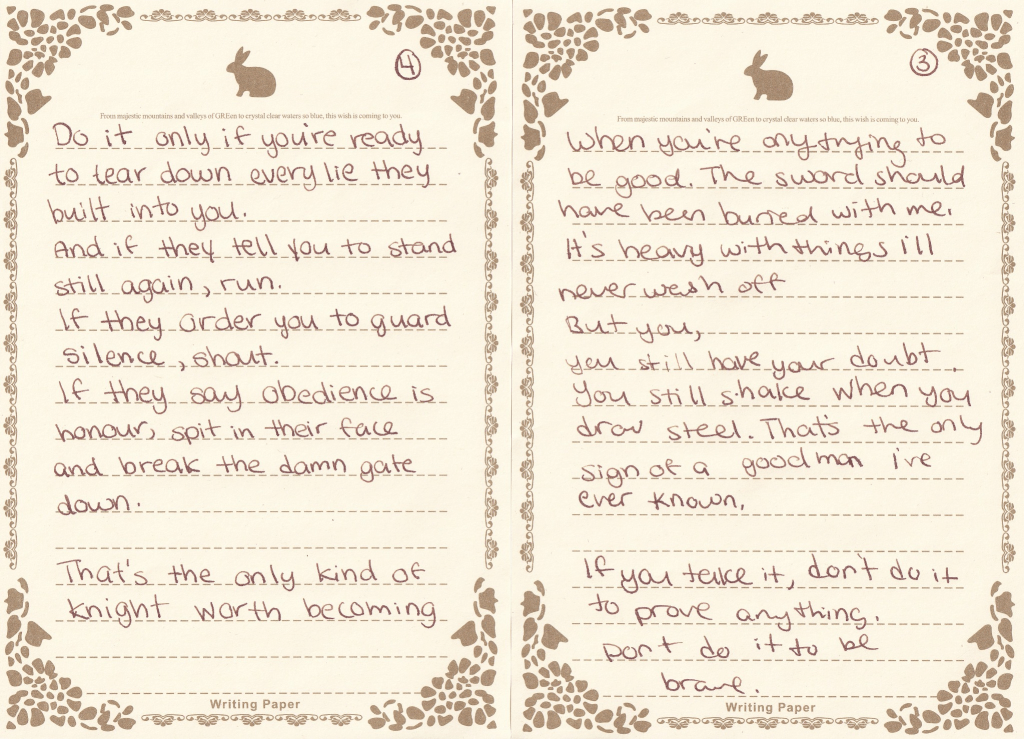 4
From majestic mountains and valleys of GREen to crystal clear waters so blue, this wish is coming to you.
Do it only if you're ready
to tear down every lie they
built into you.
And if they tell you to stand
still again, run.
If they order you to guard
silence, shout.
If they say obedience is
honour, spit in their face
and break the damn gate
down.
That's the only kind of
knight worth becoming
Writing Paper
3
From majestic mountains and valleys of GREen to crystal clear waters so blue, this wish is coming to you.
When you're only trying to
be good. The sword should
have been buried with me.
It's heavy with things i'll
never wash off
But you,
you still have your doubt.
You still shake when you
draw steel. That's the only
sign of a good man i've
ever known.
If you take it, don't do it
to prove anything.
Don't do it to be
brave.
Writing Paper